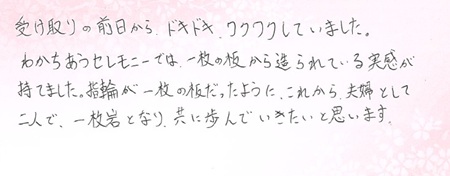 受け取りの前日から、ドキドキ、ワクワクしていました。
わかちあうセレモニーでは、一枚の板から造られている実感が
持てました。指輪が一枚の板だったように、これから、夫婦として
二人で、一枚岩となり、共に歩んでいきたいと思います。